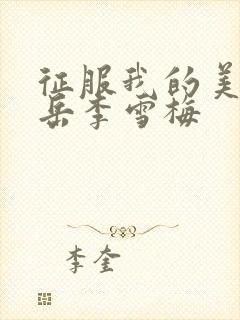 征服我的美
岳李雪梅
李奎